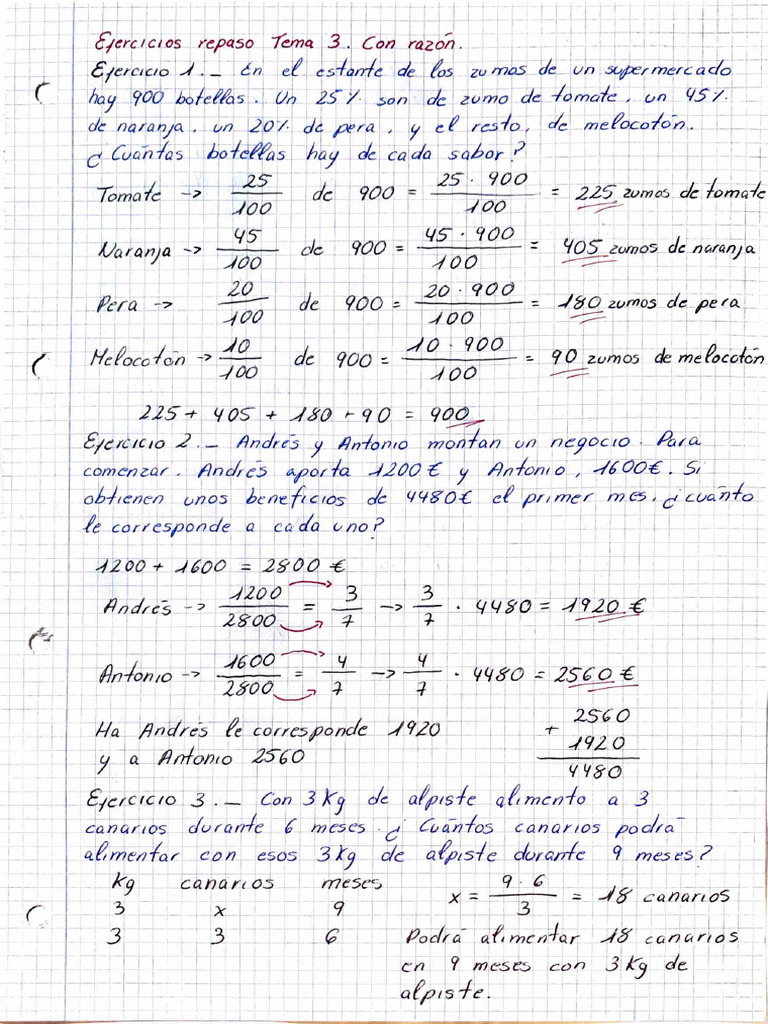 Ejercicios repaso Tema 3. Con razón.
Ejercicio 1.- En el estante de los zumos de un supermercado
hay 900 botellas. Un 25% son de zumo de tomate, un 45%
de naranja, un 20% de pera, y el resto, de melocotón.
¿Cuántas botellas hay de cada sabor?
Tomate -> 25/100 de 900 = 25 · 900/100 = 225 zumos de tomate
Naranja -> 45/100 de 900 = 45 · 900/100 = 405 zumos de naranja
Pera -> 20/100 de 900 = 20 · 900/100 = 180 zumos de pera
Melocotón -> 10/100 de 900 = 10 · 900/100 = 90 zumos de melocotón
225 + 405 + 180 + 90 = 900
Ejercicio 2.- Andrés y Antonio montan un negocio. Para
comenzar, Andrés aporta 1200€ y Antonio, 1600€. Si
obtienen unos beneficios de 4480€ el primer mes, ¿cuánto
le corresponde a cada uno?
1200 + 1600 = 2800 €
Andrés -> 1200/2800 = 3/7 -> 3/7 · 4480 = 1920 €
Antonio -> 1600/2800 = 4/7 -> 4/7 · 4480 = 2560 €
Ha Andrés le corresponde 1920
y a Antonio 2560
2560
+ 1920
4480
Ejercicio 3.- Con 3Kg de alpiste alimento a 3
canarios durante 6 meses. ¿Cuántos canarios podrá
alimentar con esos 3Kg de alpiste durante 9 meses?
Kg canarios meses
3 x 9
3 3 6
x = 9 · 6/3 = 18 canarios
Podrá alimentar 18 canarios
en 9 meses con 3Kg de
alpiste.